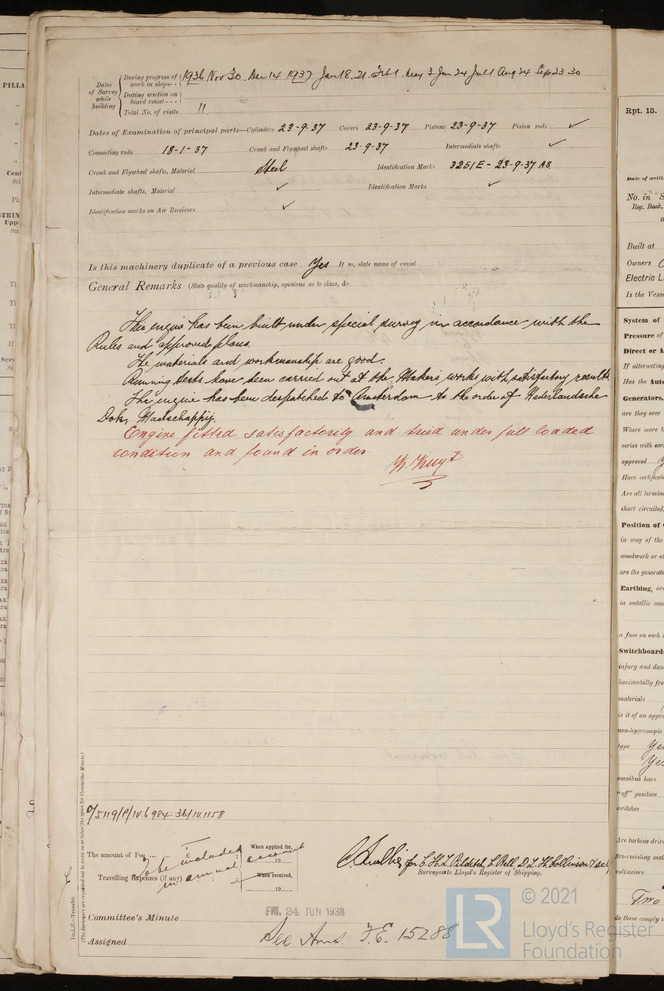 Dates of Survey while building
During progress of work in shops - - 1936 Nov 30. Dec 14 1937 Jan 18. 21. Feb 1. May 3. Jun 24 Jul 1 Aug 24 Sep 23 30
During erection on board vessel - - -
Total No. of visits 11
Dates of Examination of principal parts—Cylinders 23-9-37 Covers 23-9-37 Pistons 23-9-37 Piston rods ✓
Connecting rods 18-1-37 Crank and Flywheel shafts 23-9-37 Intermediate shafts ✓
Crank and Flywheel shafts, Material Steel Identification Marks 3251E - 23-9-37 AB
Intermediate shafts, Material ✓ Identification Marks ✓
Identification marks on Air Receivers ✓
Is this machinery duplicate of a previous case Yes If so, state name of vessel
General Remarks (State quality of workmanship, opinions as to class, &c.
This engine has been built under special survey in accordance with the
Rules and approved plans.
The materials and workmanship are good.
Running tests have been carried out at the Makers works with satisfactory results
The engine has been despatched to Amsterdam to the order of Nederlandsche
Dok Maatschappij.
Engine fitted satisfactorily and tried under full loaded
condition and found in order.
O/5119/P/IV.6984.36/IV1158
The amount of Fee ... £ When applied for,
To be included
in annual account
19
Travelling Expenses (if any) When received,
19
for C.H.T. Pilditch, L Bell, D.L.
Surveyor to Lloyd's Register of Shipping.
Committee's Minute FRI. 24 JUN 1938
Assigned See Ams. F.E. 15288
© 2021
LR Lloyd's Register
Foundation
Rpt. 13.
Date of
No. in
Reg. Book.
Built at
Owners
Electric L
Is the Vess
System of
Pressure of
Direct or A
If alternating
Has the Auto
Generators,
are they over
Where were t
series with
approval
Have certificate
Are all termin
short circuited,
Position of
in way of the
woodwork or
are the generat
Earthing,
in metallic
a fuse on each
Switchboards
injury and
horizontally fro
materials
is it of an
non-hygroscopic
type Yes
Yes
omnibus bars
"off" position
switches
Are turbine driv
fire-resisting mat
voltmeters
Two
do these comply